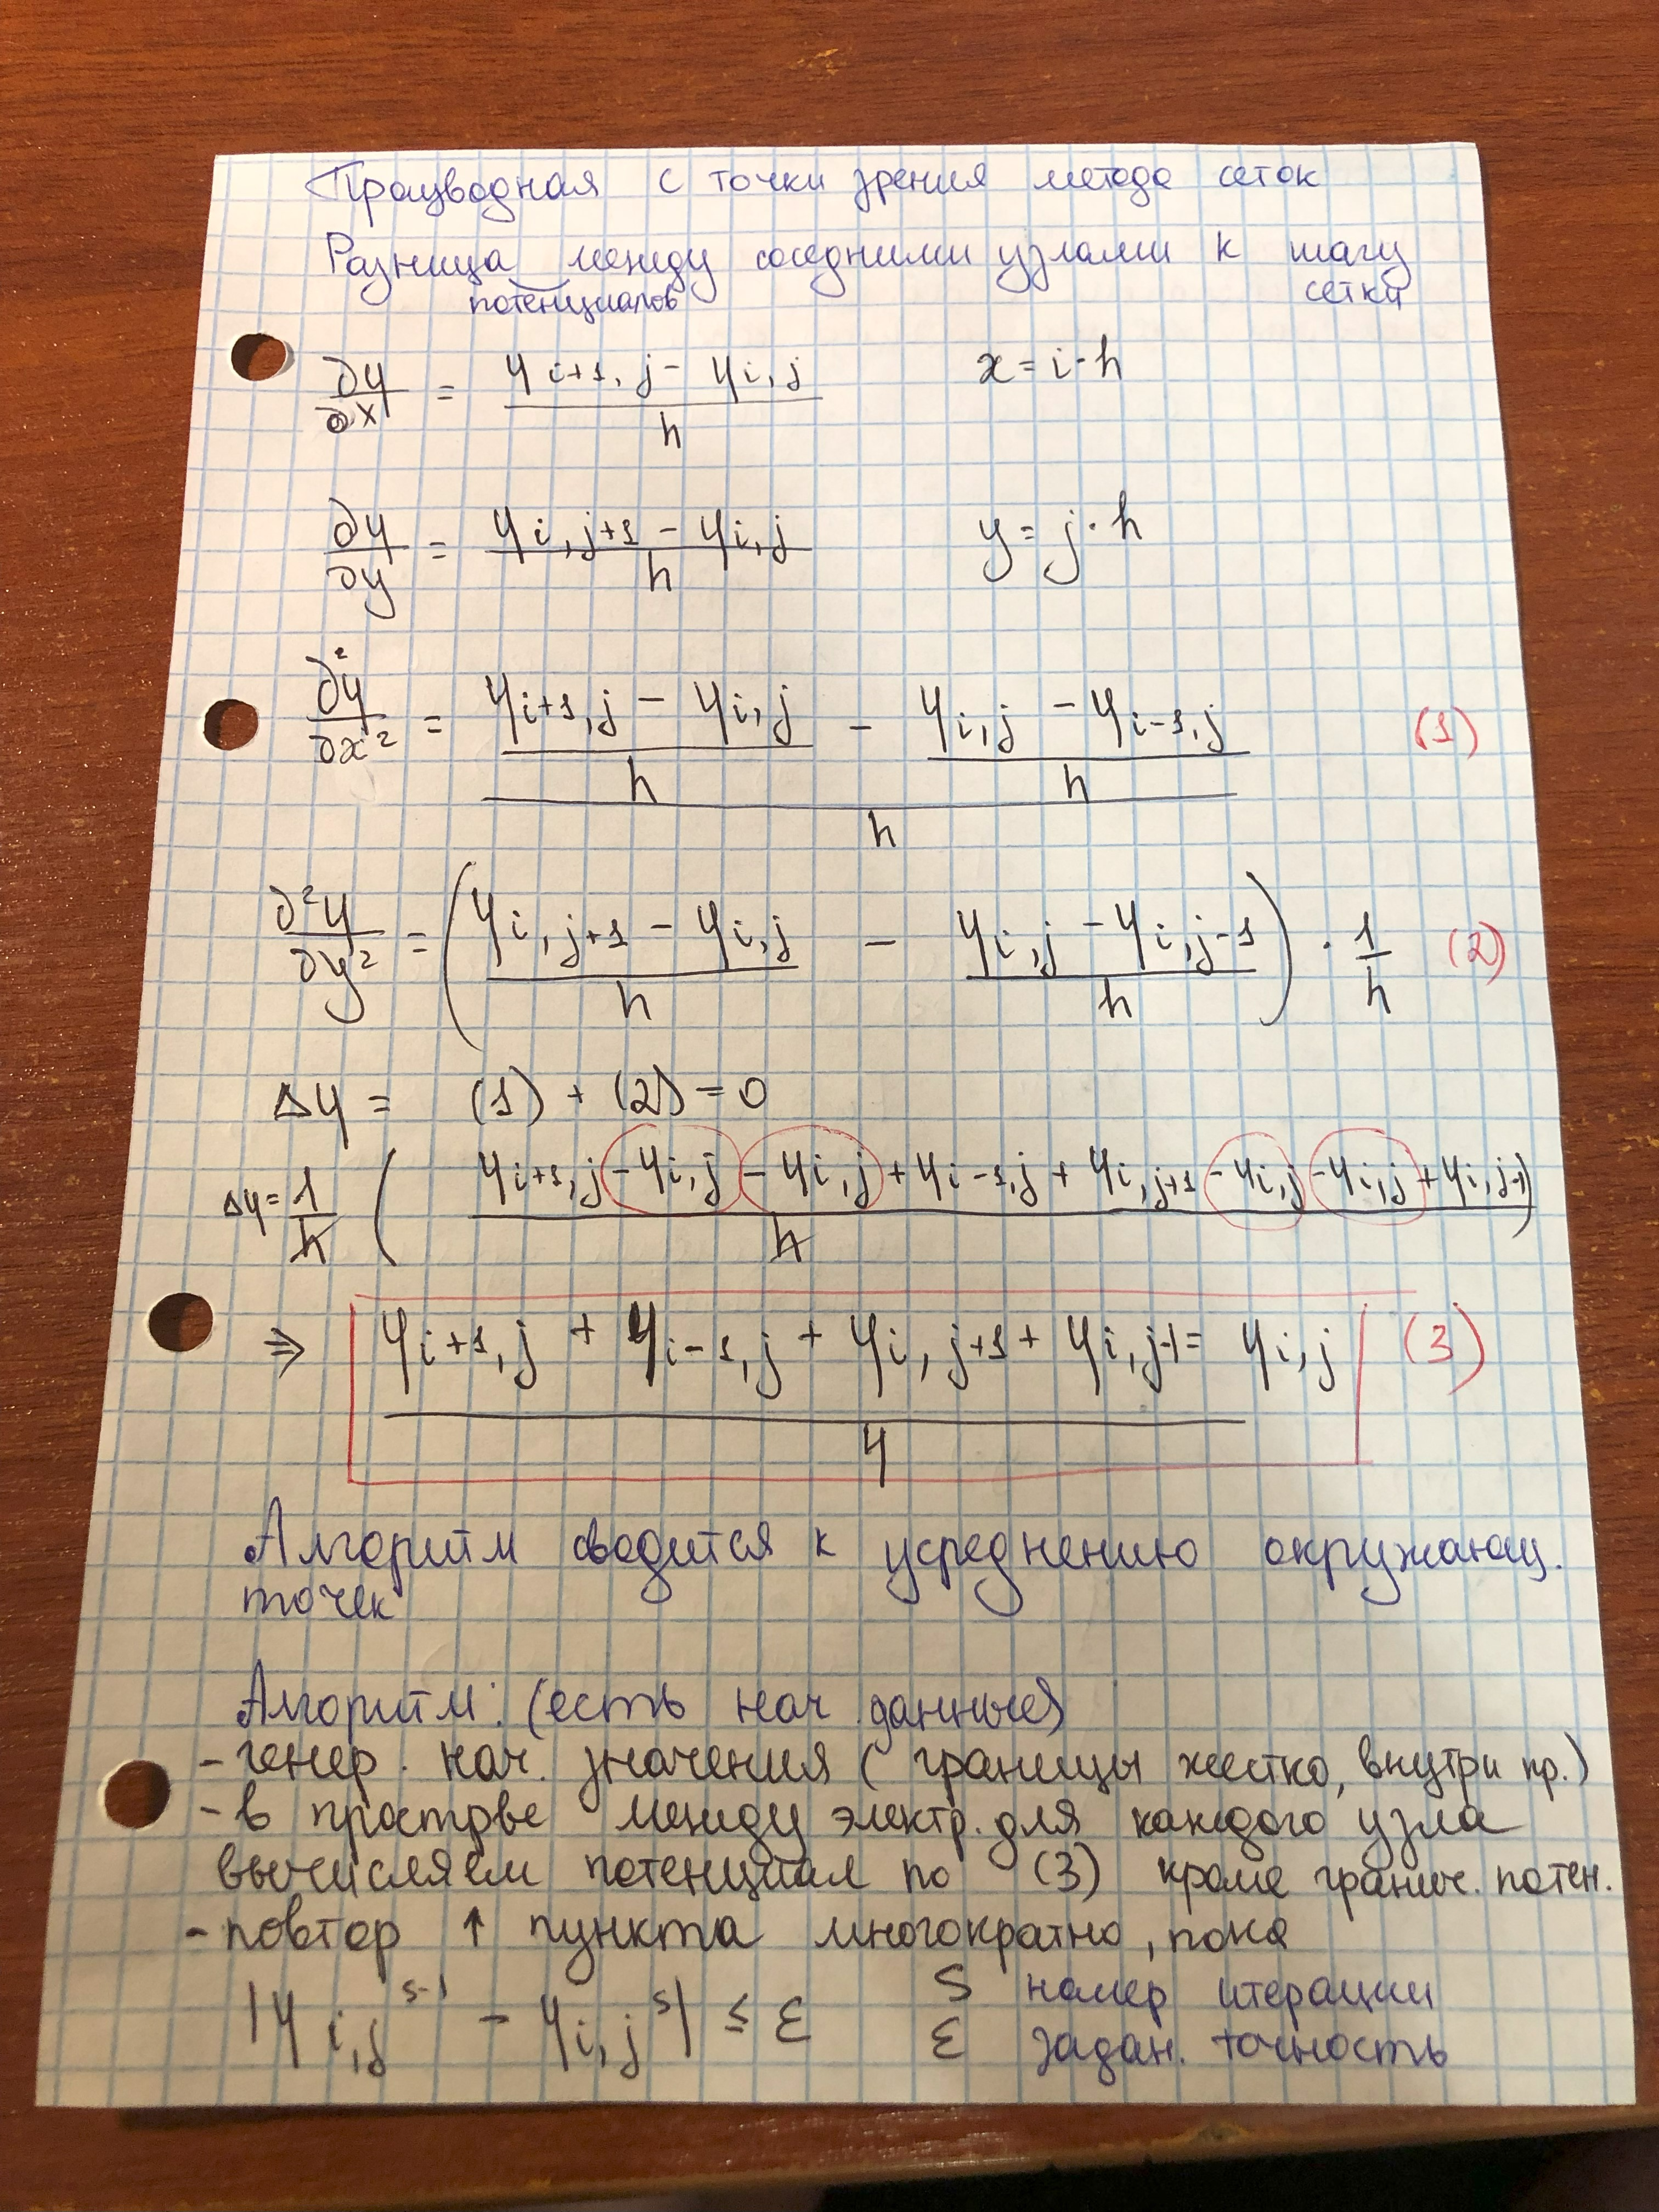 Производная с точки зрения метода сеток
Разница между соседними узлами к шагу
потенциалов сетки
∂φ/∂x = (φi+1,j - φi,j)/h x = i·h
∂φ/∂y = (φi,j+1 - φi,j)/h y = j·h
∂²φ/∂x² = ((φi+1,j - φi,j)/h - (φi,j - φi-1,j)/h)/h (1)
∂²φ/∂y² = ((φi,j+1 - φi,j)/h - (φi,j - φi,j-1)/h) · 1/h (2)
Δφ = (1) + (2) = 0
Δφ = 1/h ((φi+1,j - φi,j - φi,j + φi-1,j + φi,j+1 - φi,j - φi,j + φi,j-1)/h)
⇒ (φi+1,j + φi-1,j + φi,j+1 + φi,j-1)/4 = φi,j (3)
Алгоритм сводится к усреднению окружающ.
точек
Алгоритм: (есть нач данные)
- генер. нач. значения (границы жестко, внутри пр.)
- в простр-ве между электр. для каждого узла
вычисляем потенциал по (3) кроме гранич. потен.
- повтор ↑ пункта многократно, пока
|φi,j^s-1 - φi,j^s| ≤ ε S номер итерации
ε задан. точность